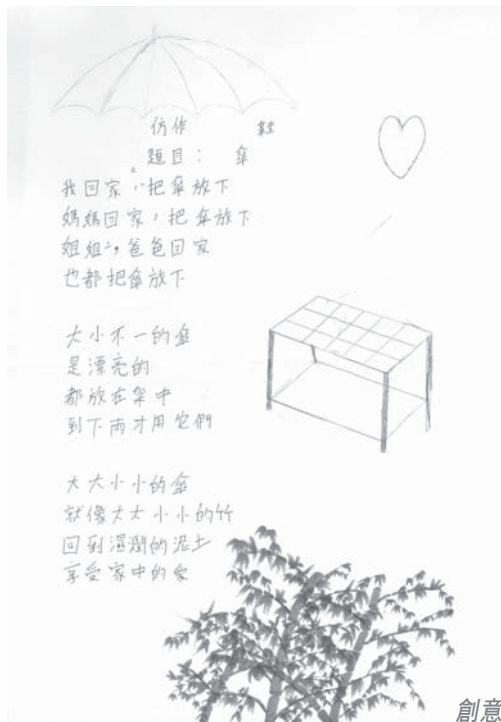 仿作 鞋
題目： 傘
我回家，把傘放下
媽媽回家，把傘放下
姐姐，爸爸回家
也都把傘放下
大小不一的傘
是漂亮的
都放在架中
到下雨才用它們
大大小小的傘
就像大大小小的竹
回到濕潤的泥土
享受家中的愛
創意